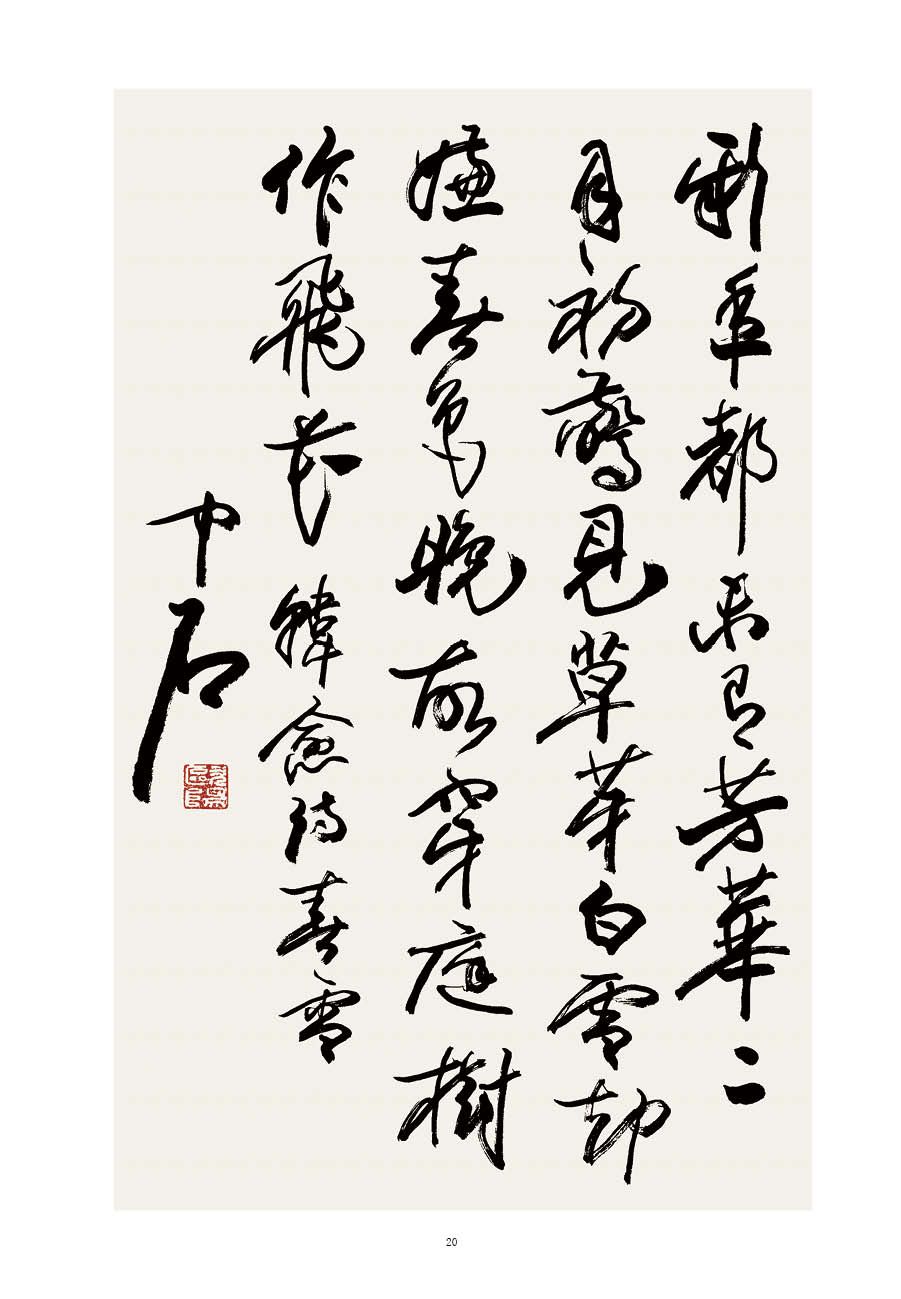 新年都未有芳華二
月初驚見草芽白雪却
嫌春色晚故穿庭樹
作飛花 韓愈詩春雪
中石
20